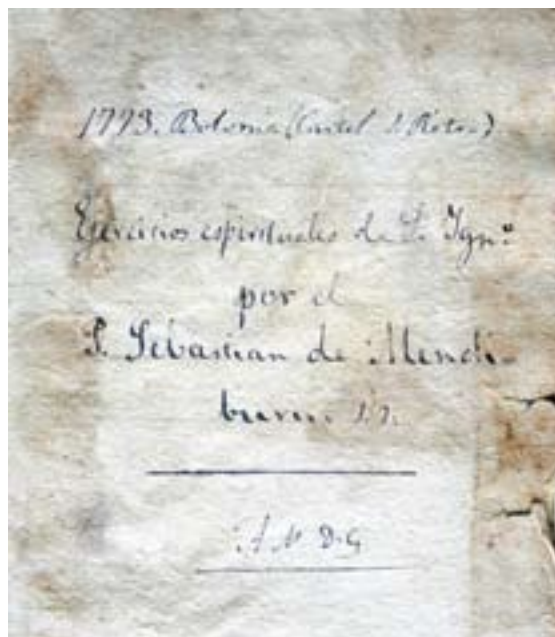 1773. Bolonia (Castel S. Pietro)
Ejercicios espirituales de S. Ignº
por el
P. Sebastian de Mendi-
buru. S.J.
A. M. D. G